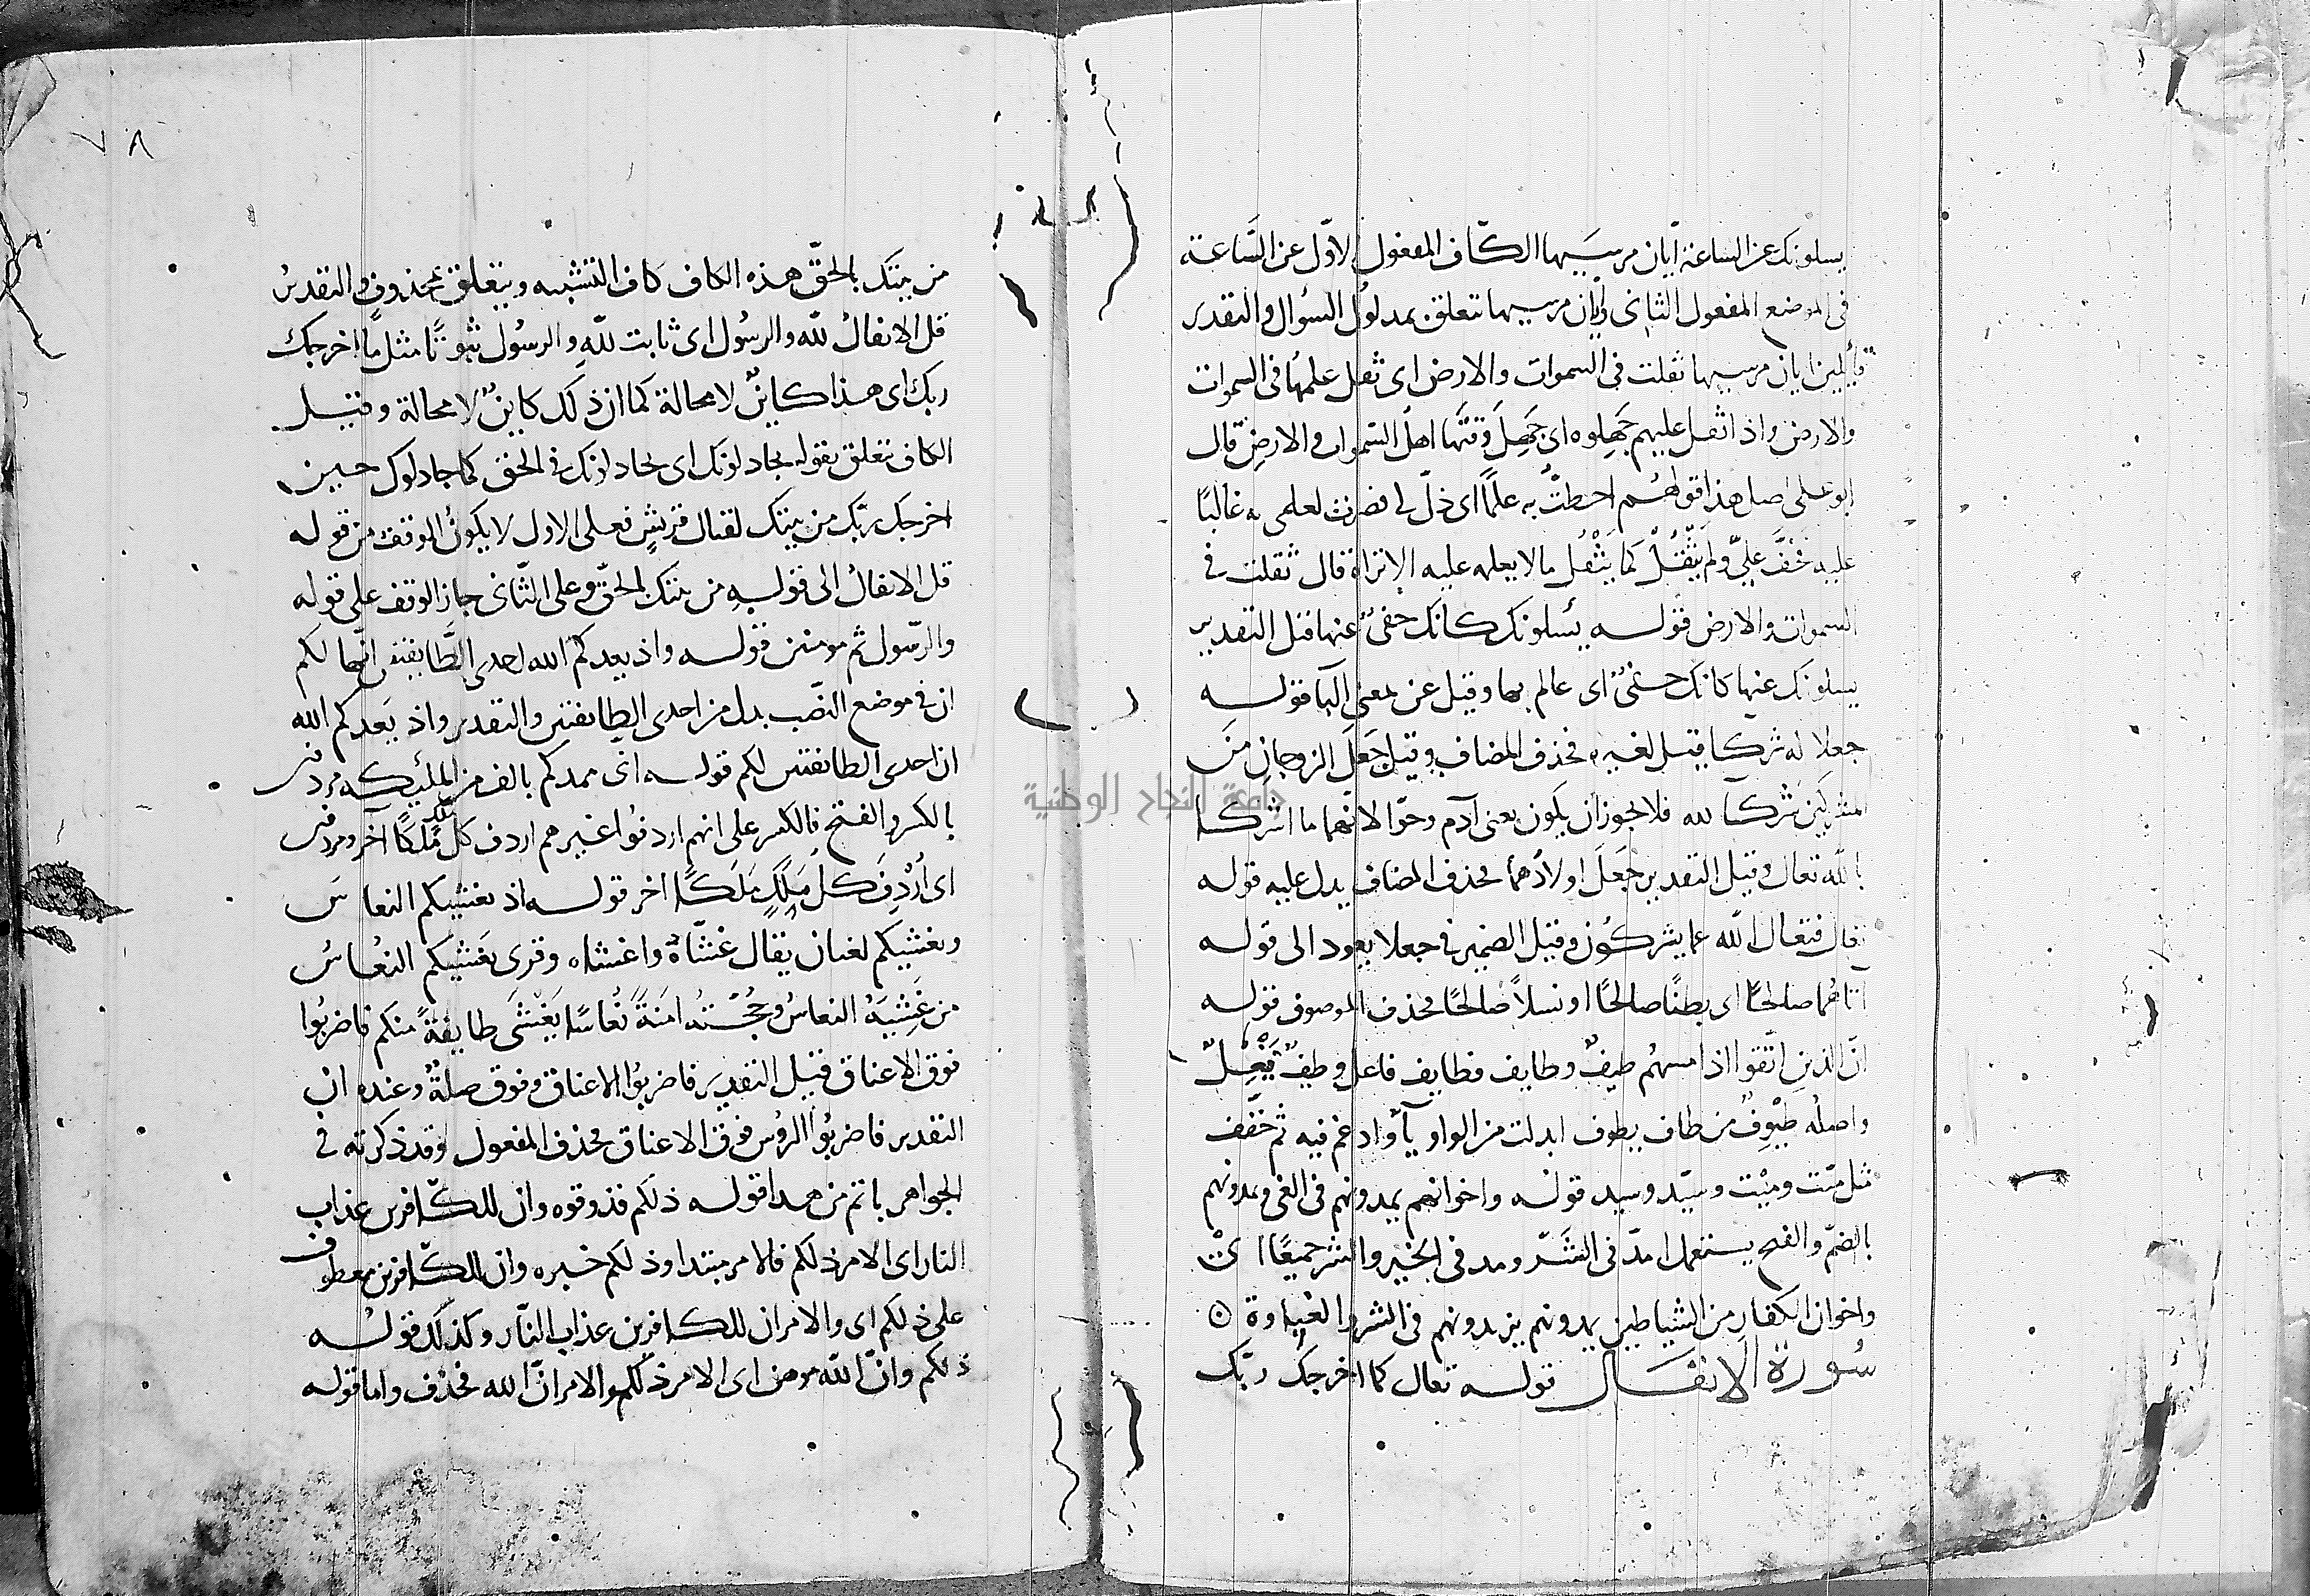 يسلونك عن الساعة أيان مرسيها الكاف المفعول الاول عن الساعة
في الموضع المفعول الثاني وأيان مرسيها تتعلق بمدلول السؤال والتقدير
قائلين ايان مرسيها ثقلت في السموات والارض اى ثقل علمها في السموات
والارض واذا ثقل عليهم جهلوه اى جهل وقتها اهل السموات والارض قال
ابو على اصل هذا قولهم احطت به علما اى ذل لى فصرت لعلمى به غالبا
عليه فخف على ولم يثقل كما يثقل ما لا يعلمه عليه الا تراه قال ثقلت في
السموات والارض قوله يسلونك كانك حفى عنها قيل التقدير
يسلونك عنها كانك حفى اى عالم بها وقيل عن بمعنى البا قوله
جعلا له شركا قيل لغيره فحذف المضاف وقيل جعل الزوجان من
المشركين شركا لله فلا يجوز ان يكون يعنى آدم وحوا لانهما ما اشركا
بالله تعالى وقيل التقدير جعل اولادهما فحذف المضاف يدل عليه قوله
تعالى فتعالى الله عما يشركون وقيل الضمير في جعلا يعود الى قوله
آتاهما صالحا اى بطنا صالحا او نسلا صالحا فحذف الموصوف قوله
ان الذين اتقوا اذا مسهم طيف وطايف فطايف فاعل وطيف فيعل
واصله طيوف من طاف يطوف ابدلت من الواو يآ وادغم فيه ثم خفف
مثل ميت وميت وسيد وسيد قوله واخوانهم يمدونهم في الغى ويمدونهم
بالضم والفتح يستعمل امد في الشر ومد في الخير والشر جميعا اى
واخوان الكفار من الشياطين يمدونهم يزيدونهم في الشر والغباوة
سورة الانفال قوله تعالى كما اخرجك ربك
٧٨
من بيتك بالحق هذه الكاف كاف التشبيه ويتعلق بمحذوف والتقدير
قل الانفال لله والرسول اى ثابت لله والرسول ثبوتا مثل ما اخرجك
ربك اى هذا كاين لا محالة كما ان ذلك كاين لا محالة وقيل
الكاف تتعلق بقوله يجادلونك اى يجادلونك في الحق كما جادلوك حين
اخرجك ربك من بيتك لقتال قريش فعلى الاول لا يكون الوقف من قوله
قل الانفال الى قوله من بيتك بالحق وعلى الثانى جاز الوقف على قوله
والرسول ثم مومنين قوله واذ يعدكم الله احدى الطايفتين انها لكم
ان في موضع النصب بدل من احدى الطايفتين والتقدير واذ يعدكم الله
ان احدى الطايفتين لكم قوله انى ممدكم بالف من الملئيكه مردفين
بالكسر والفتح فالكسر على انهم اردفوا غيرهم اردف كل ملك ملكا آخر ومردفين
اى اردف كل ملك ملكا اخر قوله اذ يغشيكم النعاس
ويغشيكم لغتان يقال غشاه واغشاه وقرى يغشيكم النعاس
من غشيه النعاس وحجته امنة نعاسا يغشى طايفة منكم فاضربوا
فوق الاعناق قيل التقدير فاضربوا الاعناق وفوق صلة وعنده ان
التقدير فاضربوا الرؤس فوق الاعناق فحذف المفعول وقد ذكرته في
الجواهر باتم من هذا قوله ذلكم فذوقوه وان للكافرين عذاب
النار اى الامر ذلكم فالامر مبتدا وذلكم خبره وان للكافرين معطوف
على ذلكم اى والامر ان للكافرين عذاب النار وكذلك قوله
ذلكم وان الله موهن اى الامر ذلكم والامر ان الله فحذف واما قوله
جامعة النجاح الوطنية